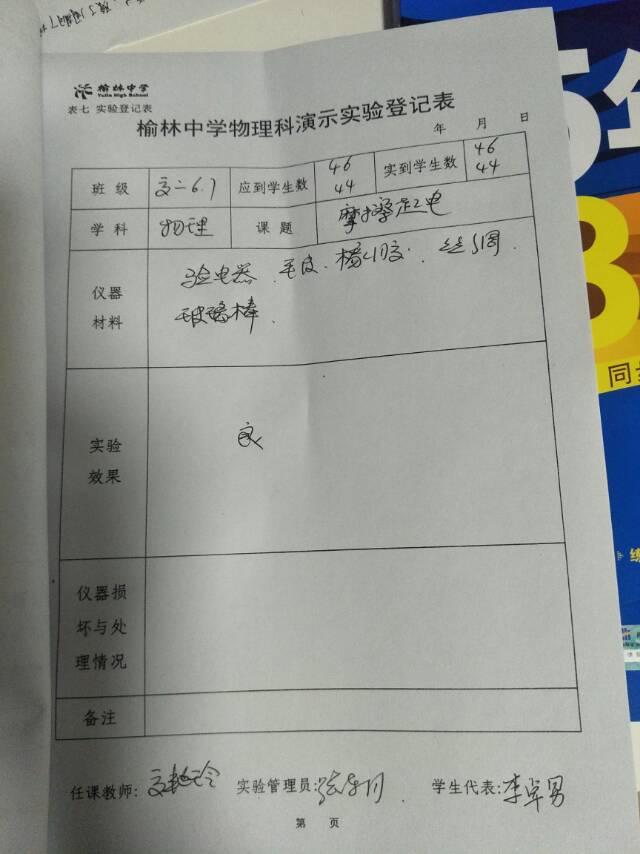 榆林中学
Yulin High School
表七 实验登记表
榆林中学物理科演示实验登记表
年 月 日
班级 高二6.7 应到学生数 46 44 实到学生数 46 44
学科 物理 课题 摩擦起电
仪器材料 验电器、毛皮、橡胶棒、丝绸、
玻璃棒、
实验效果 良
仪器损坏与处理情况
备注
任课教师: 实验管理员: 学生代表:李卓男
第 页
同步